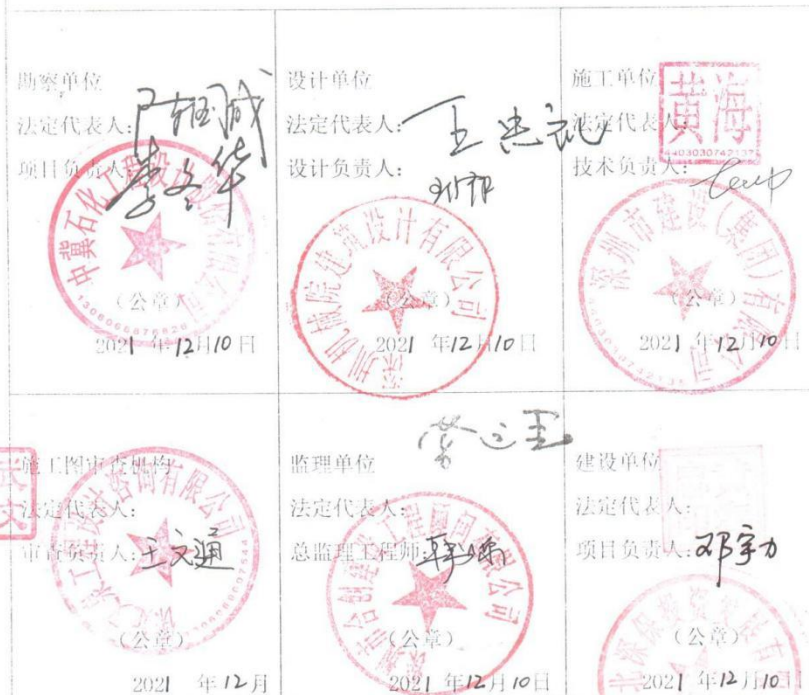 勘察单位
法定代表人:
项目负责人:
李冬华
中冀石化工程设计有限公司
(公章)
2021 年12月10日
设计单位
法定代表人:王忠
设计负责人:
深圳机械院建筑设计有限公司
(公章)
2021 年12月10日
施工单位
法定代表人:
黄海
4403030742137
技术负责人:
深圳市建设(集团)有限公司
(公章)
2021 年12月10日
施工图审查机构
法定代表人:
审查负责人:王文通
工程设计咨询有限公司
(公章)
2021 年12月
监理单位
法定代表人:
总监理工程师:
合创建设工程顾问有限公司
(公章)
2021 年12月10日
建设单位
法定代表人:
项目负责人:邓宇力
深保投资发展有限
(公章)
2021 年12月10日